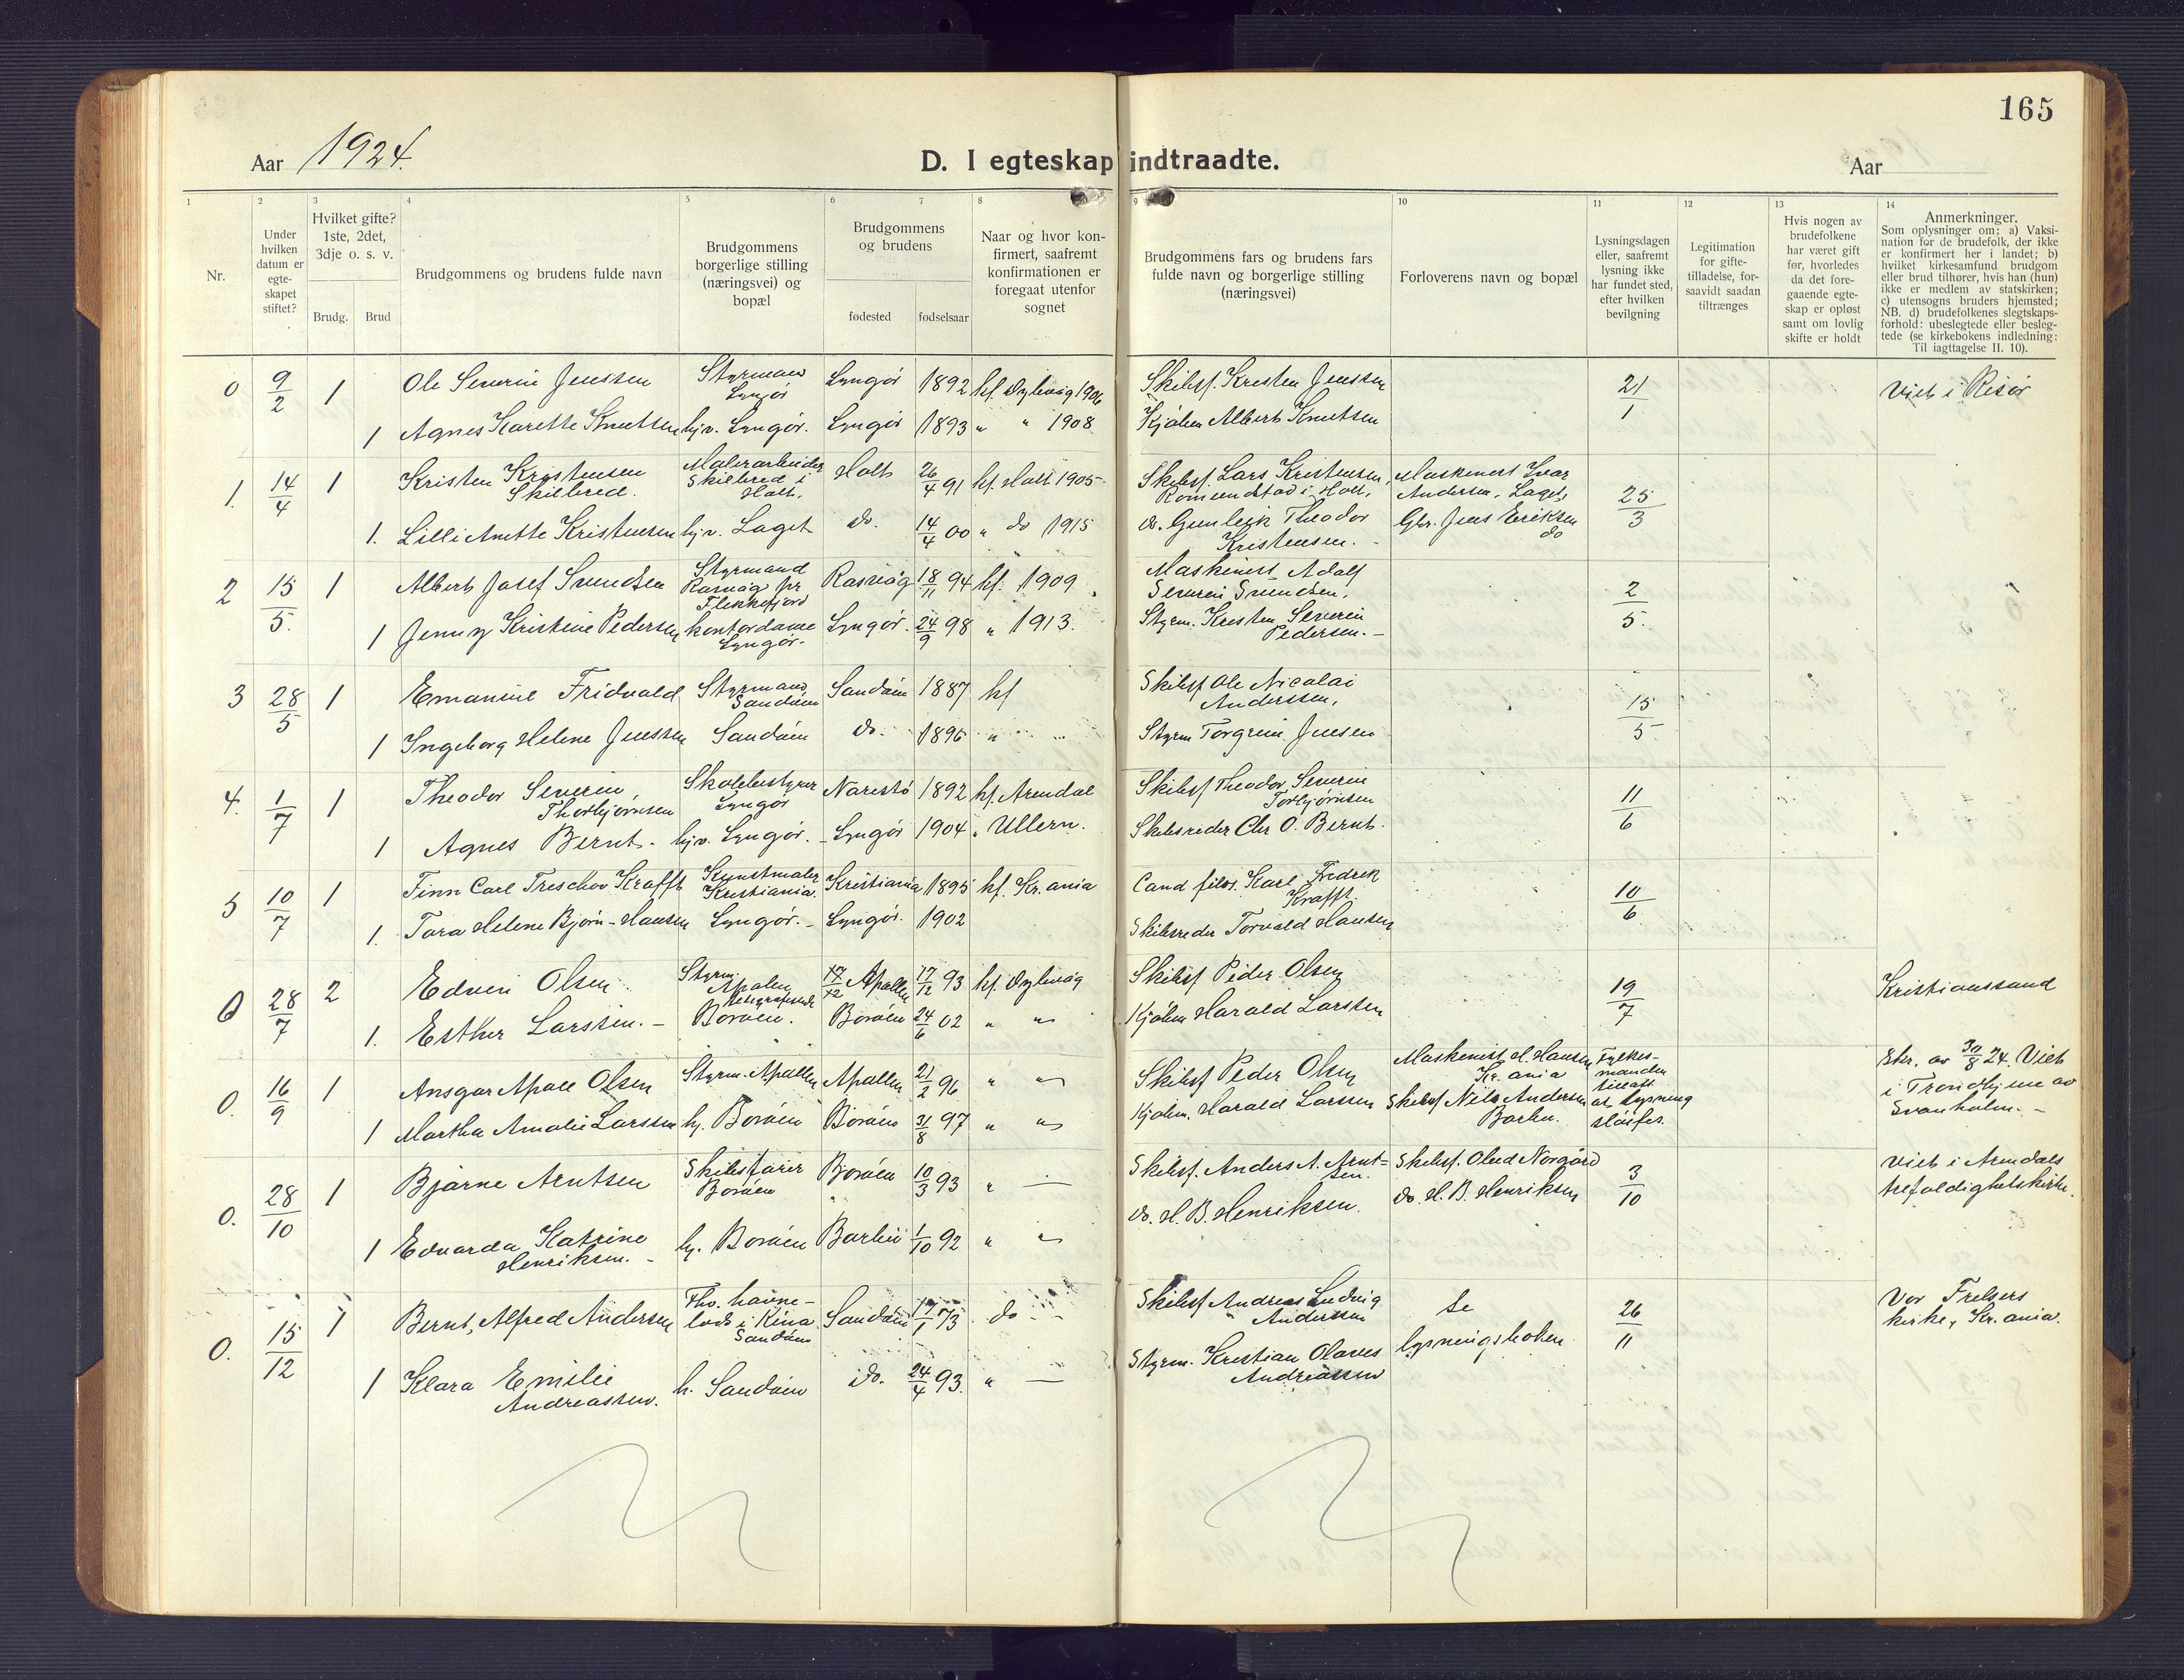 165
Aar 1924.
D. I egteskap indtraadte.
Aar
1
2
3
4
5
6
7
8
9
10
11
12
13
14
Nr.
Under
hvilken
datum er
egte-
skapet
stiftet?
Hvilket gifte?
1ste, 2det,
3dje o. s. v.
Brudg.
Brud
Brudgommens og brudens fulde navn
Brudgommens
borgerlige stilling
(næringsvei) og
bopæl
Brudgommens
og brudens
fødested
fødselsaar
Naar og hvor kon-
firmert, saafremt
konfirmationen er
foregaat utenfor
sognet
Brudgommens fars og brudens fars
fulde navn og borgerlige stilling
(næringsvei)
Forloverens navn og bopæl
Lysningsdagen
eller, saafremt
lysning ikke
har fundet sted,
efter hvilken
bevilgning
Legitimation
for gifte-
tilladelse, for-
saavidt saadan
tiltrænges
Hvis nogen av
brudefolkene
har været gift
før, hvorledes
da det fore-
gaaende egte-
skap er opløst
samt om lovlig
skifte er holdt
Anmerkninger.
Som oplysninger om: a) Vaksi-
nation for de brudefolk, der ikke
er konfirmert her i landet; b)
hvilket kirkesamfund brudgom
eller brud tilhører, hvis han (hun)
ikke er medlem av statskirken;
c) utensogns bruders hjemsted;
NB. d) brudefolkenes slegtskaps-
forhold: ubeslegtede eller besleg-
tede (se kirkebokens indledning:
Til iagttagelse II. 10).
0 9/2 1 Ole Severin Jenssen Styrmand Lyngør Lyngør 1892 kf. Dybvåg 1906 Skibsf. Kresten Jenssen 21/1 Viet i Risør
1 Agnes Karette Knutsen hjv. Lyngør. Lyngør 1893 " " 1908 Kjølm Albert Knutsen
1. 14/4 1 Kristen Kristensen Skilbred. Malerarbeider Skilbred i Holt. Holt 26/4 91 kf. Holt 1905 Skibsf. Lars Kristensen, Romundstad i Holt, Maskinist Ivar Andersen, Laget, 25/3
1. Lilli Anette Kristensen hjv. Laget do. 14/4 00 " do 1915 do. Gunleik Theodor Kristensen. Gbr. Jens Eriksen do
2 15/5. 1 Albert Josef Svendsen Styrmand Rasvåg pr Flekkefjord Rasvåg 18/11 94 kf. 1909 Maskinist Adolf Severin Svendsen, 2/5.
1 Jenny Kristine Pedersen kontordame Lyngør. Lyngør. 24/9 98 " 1913. Styrm. Kresten Severin Pedersen. -
3 28/5 1 Emanuel Fridvald Styrmand, Sandøen Sandøen 1887 kf Skibsf Ole Nicolai Anderssen, 15/5
1 Ingeborg Helene Jenssen Sandøen do. 1896 " Styrm Torgrim Jensen
4. 1/7 1 Theodor Severin Thorbjørnsen Skolebestyrer Lyngør Narestø 1892 kf. Arendal Skibsf Theodor Severin Torbjørnsen 11/6
1 Agnes Bernt. hjv. Lyngør. Lyngør 1904 " Ullern. Skibsreder Chr O. Bernt.
5 10/7 1 Finn Carl Treschov Krafft Kunstmaler Kristiania. Kristiania 1895 kf. Kr.ania Cand filos. Karl Fredrik Krafft. 10/6
1. Tora Helene Bjørn-Hansen Lyngør. Lyngør. 1902 Skibsreder Torvald Hansen
0 28/7 2 Edvin Olsen Styrm. Apalen 17/12 93 kf. Dybvåg Skibsf Peder Olsen 19/7 Kristianssand
1. Esther Larssen. Borøen. Borøen 24/6 02 " " Kjølm Harald Larssen
0. 16/9 1 Ansgar Apall Olsen Styrm. Apallen Apallen 21/2 96 " " Skibsf Peder Olsen Maskinist H. Hansen Kr.ania Fylkes-manden tillatt at lysning sløifes. Skr. av 30/8 24. Viet i Trondhjem av Svanholm. -
1 Martha Amalie Larssen hj. Borøen Borøen 31/8 97 " " Kjølm. Harald Larssen Skibsf Nils Andersen Barbu.
0. 28/10 1 Bjarne Arntsen Skibsfører Borøen Borøen 10/3 93 " — Skibsf. Anders A. Arnt=sen. Skibsf. Olud Norgård 3/10 Viet i Arendals trefoldighetskirke.
1 Edvarda Katrine Henriksen. - hj. Borøen Barbu 1/10 92 " " do. H. B. Henriksen. do. H. B. Henriksen
0. 15/12 1 Bernt Alfred Andersen Fhv. havne-lods i Kina Sandøen Sandøen 17/1 73. do Skibsf Andreas Ludvig Anderssen Se lysningsboken 26/11 Vor Frelsers kirke, Kr.ania.
1 Klara Emilie Andreassen. h. Sandøen do. 24/4 93. " — Styrm. Kristian Olaves Andreassen